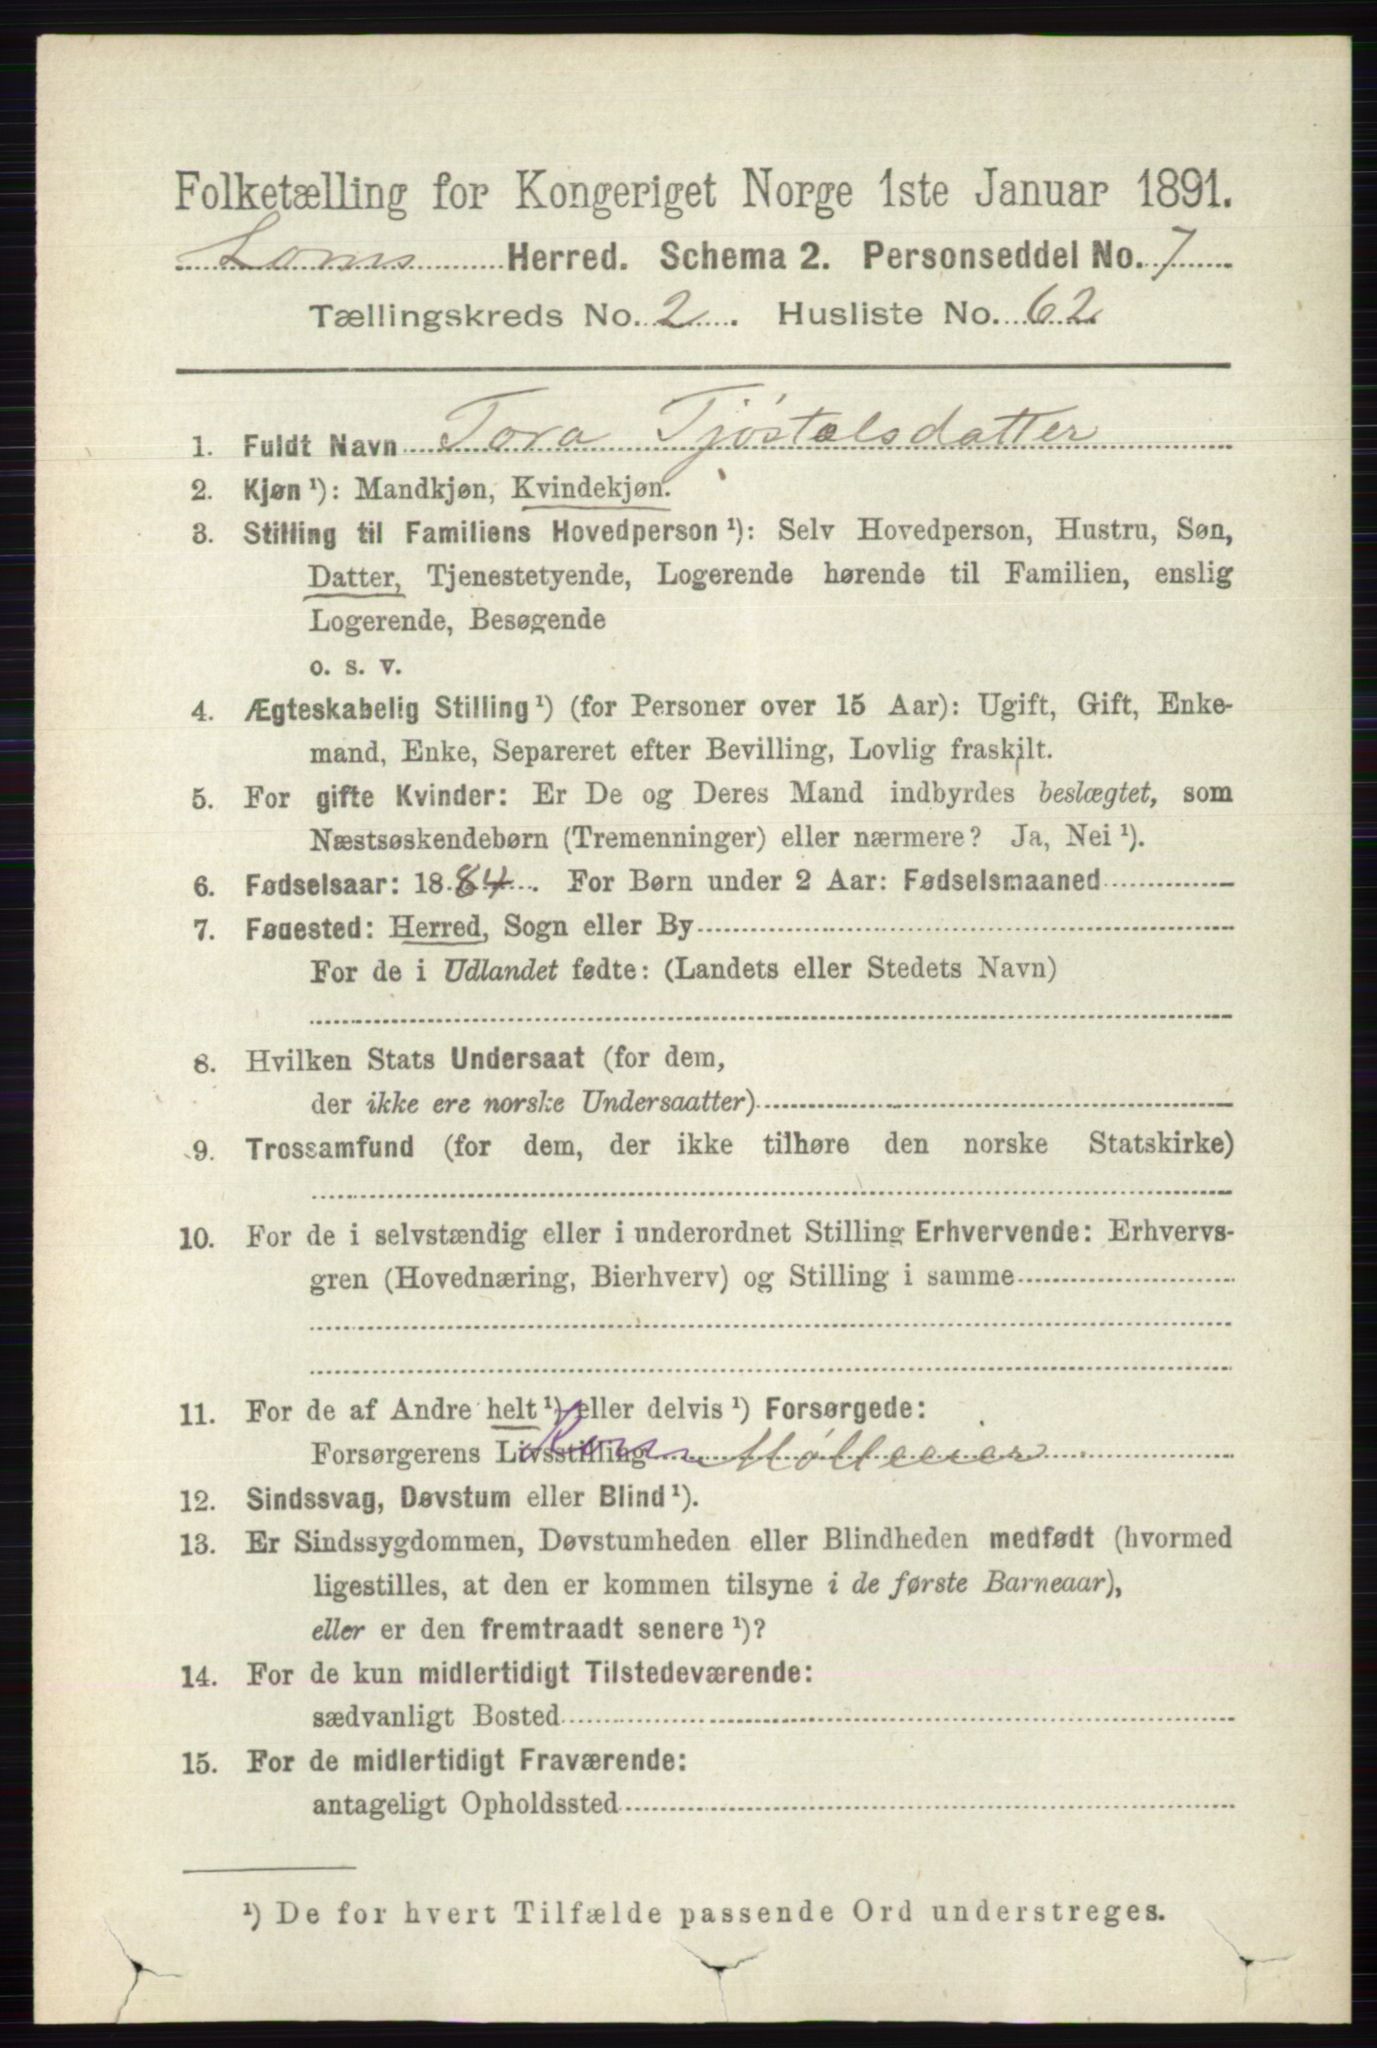 Folketælling for Kongeriget Norge 1ste Januar 1891.
Loms Herred. Schema 2. Personseddel No. 7
Tællingskreds No. 2. Husliste No. 62
1. Fuldt Navn Tora Tjøstelsdatter
2. Kjøn ¹): Mandkjøn, Kvindekjøn.
3. Stilling til Familiens Hovedperson ¹): Selv Hovedperson, Hustru, Søn,
Datter, Tjenestetyende, Logerende hørende til Familien, enslig
Logerende, Besøgende
o. s. v.
4. Ægteskabelig Stilling ¹) (for Personer over 15 Aar): Ugift, Gift, Enke-
mand, Enke, Separeret efter Bevilling, Lovlig fraskilt.
5. For gifte Kvinder: Er De og Deres Mand indbyrdes beslægtet, som
Næstsøskendebørn (Tremenninger) eller nærmere? Ja, Nei ¹).
6. Fødselsaar: 1884. For Børn under 2 Aar: Fødselsmaaned
7. Fødested: Herred, Sogn eller By
For de i Udlandet fødte: (Landets eller Stedets Navn)
8. Hvilken Stats Undersaat (for dem,
der ikke ere norske Undersaatter)
9. Trossamfund (for dem, der ikke tilhøre den norske Statskirke)
10. For de i selvstændig eller i underordnet Stilling Erhvervende: Erhvervs-
gren (Hovednæring, Bierhverv) og Stilling i samme
11. For de af Andre helt ¹) eller delvis ¹) Forsørgede:
Forsørgerens Livsstilling
12. Sindssvag, Døvstum eller Blind ¹).
13. Er Sindssygdommen, Døvstumheden eller Blindheden medfødt (hvormed
ligestilles, at den er kommen tilsyne i de første Barneaar),
eller er den fremtraadt senere ¹)?
14. For de kun midlertidigt Tilstedeværende:
sædvanligt Bosted
15. For de midlertidigt Fraværende:
antageligt Opholdssted
¹) De for hvert Tilfælde passende Ord understreges.